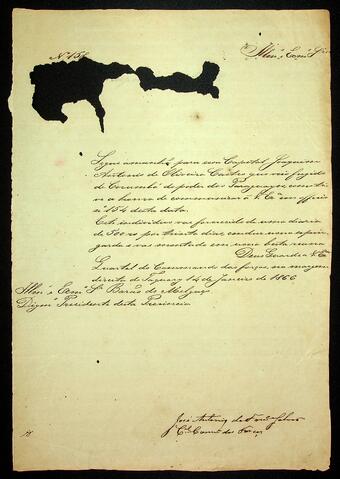 Nº 158
Illmo e Exmo Snr
Segue amanhã para essa Capital Joaquim
Antonio de Oliveira Castro que veio fugido
de Corumbá do poder dos Paraguayos, como ti-
ve a honra de communicar a V. Exa em officio
nº 154 desta data.
Este individuo vai fornecido de uma diaria
de 500 rs por trinta dias, conduz uma espin-
garda e vai montado em uma besta ruana
Deus Guarde a V. Exa
Quartel do Commando das forças na margem
direita do Taquary 14 de Janeiro de 1866
Illmo e Exmo Snr Barão de Melgaço
Digno Presidente desta Provincia
José Antonio da